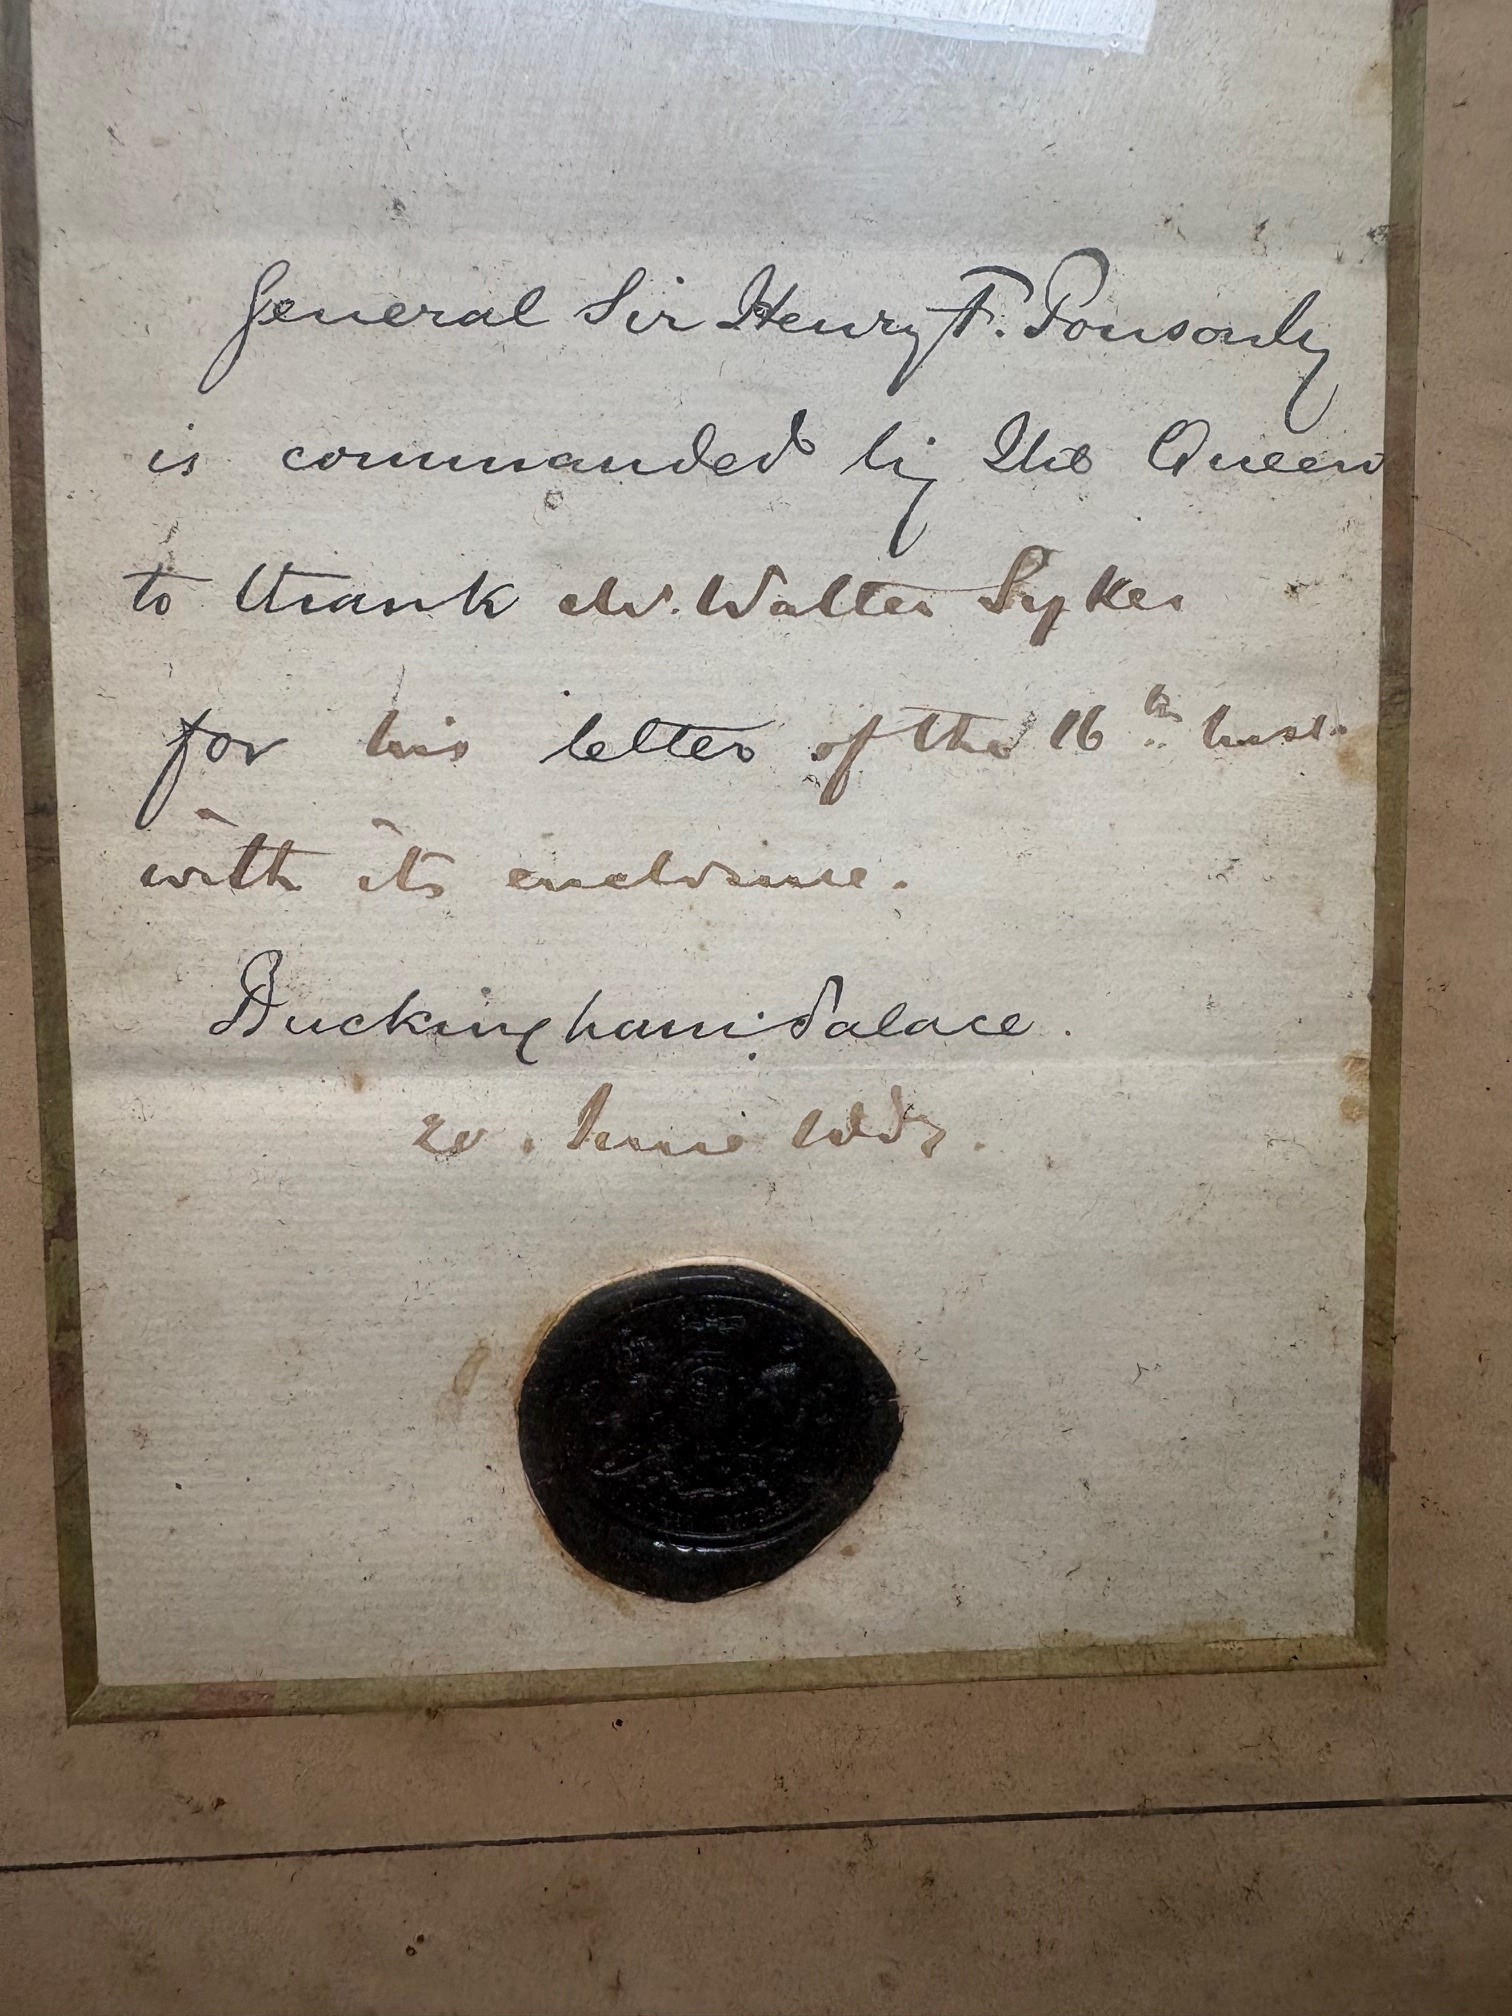 General Sir Henry F. Ponsonby
is commanded by The Queen
to thank Mr. Walter Sykes
for his letter of the 16th inst.
with its enclosure.
Buckingham Palace.
20. June